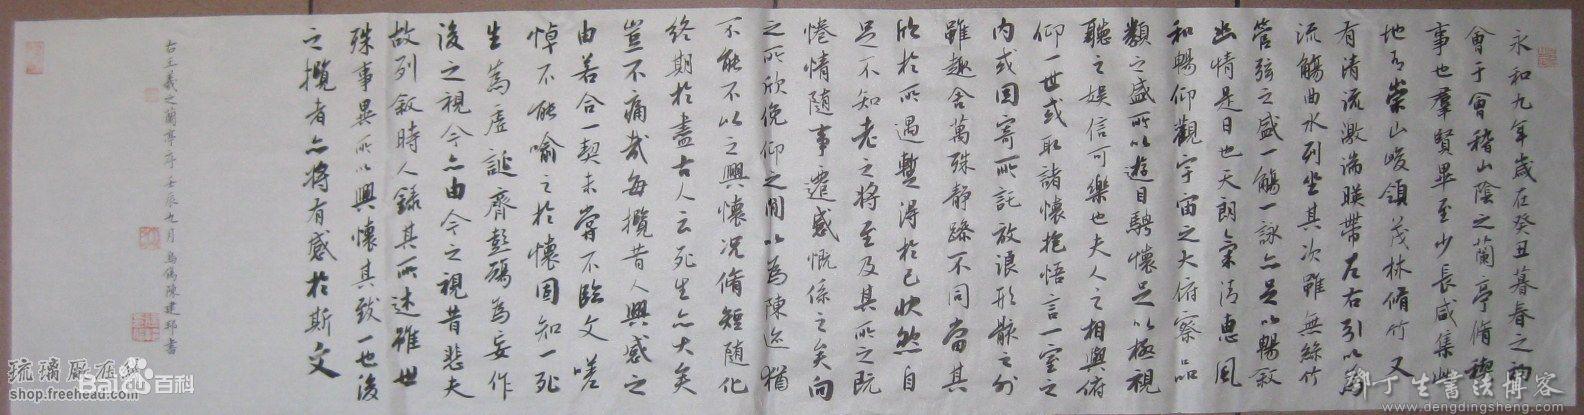 永和九年歲在癸丑暮春之初
會于會稽山陰之蘭亭脩禊
事也羣賢畢至少長咸集此
地有崇山峻領茂林脩竹又
有清流激湍暎帶左右引以為
流觴曲水列坐其次雖無絲竹
管弦之盛一觴一詠亦足以暢敘
幽情是日也天朗氣清惠風
和暢仰觀宇宙之大俯察品
類之盛所以遊目騁懷足以極視
聽之娛信可樂也夫人之相與俯
仰一世或取諸懷抱悟言一室之
內或因寄所託放浪形骸之外
雖趣舍萬殊靜躁不同當其
欣於所遇蹔得於己快然自
足不知老之將至及其所之既
惓情隨事遷感慨係之矣向
之所欣俛仰之間以為陳迹猶
不能不以之興懷況脩短隨化
終期於盡古人云死生亦大矣
豈不痛哉每攬昔人興感之
由若合一契未嘗不臨文嗟
悼不能喻之於懷固知一死
生為虛誕齊彭殤為妄作
後之視今亦由今之視昔悲夫
故列敘時人錄其所述雖世
殊事異所以興懷其致一也後
之攬者亦將有感於斯文
右王羲之蘭亭序壬辰九月烏傷陳建邦書
琉璃厂在线
shop.freehead.com
Bai百科
邓丁生書法博客
www.dengdingsheng.com